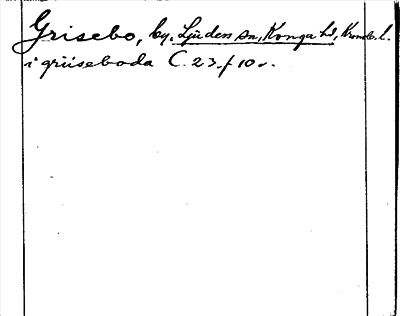 Grisebo, by. Ljuden sn, Konga hd, Kronob. l.
i griiseboda C. 23. f 10 v.